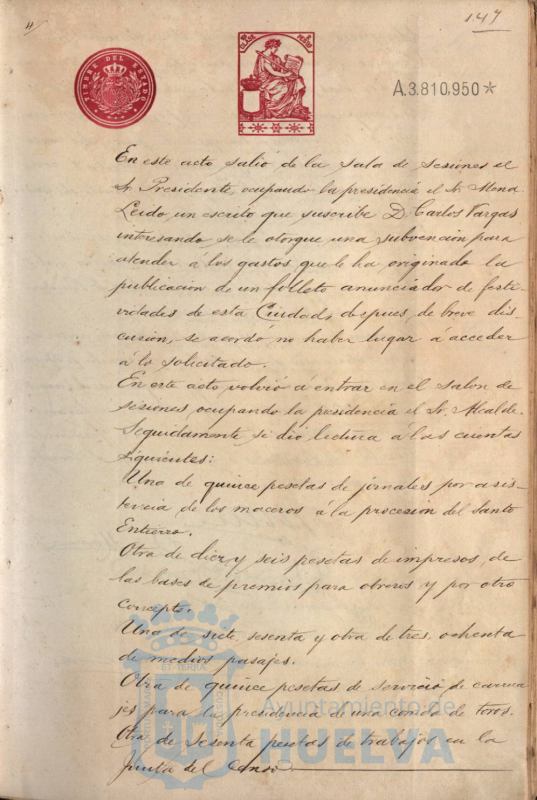 147
TIMBRE DEL ESTADO
CLASE
PESO
A.3.810,950*
En este acto salió de la sala de sesiones el
Sr. Presidente, ocupando la presidencia el Sr. Mena.
Leido un escrito que suscribe D. Carlos Vargas
interesando se le otorgue una subvención para
atender á los gastos que le ha originado la
publicacion de un folleto anunciador de festi-
vidades de esta Ciudad, despues, de breve dis-
cusión, se acordó no haber lugar á acceder
á lo solicitado.
En este acto volvió á entrar en el salon de
sesiones, ocupando la presidencia el Sr. Alcalde.
Seguidamente se dió lectura á las cuentas
siguientes:
Una de quince pesetas de jornales por asis-
tencia de los maceros á la procesion del Santo
Entierro.
Otra de diez y seis pesetas de impresos, de
las bases de premios para obreros y por otro
concepto.
Una de siete, sesenta y otra de tres, ochenta
de medios pasajes.
Otra de quince pesetas de servicio, de carrua
jes para la presidencia de una corrida de toros.
Otra de sesenta pesetas de trabajos en la
Junta del Censo
Ayuntamiento de
HUELVA